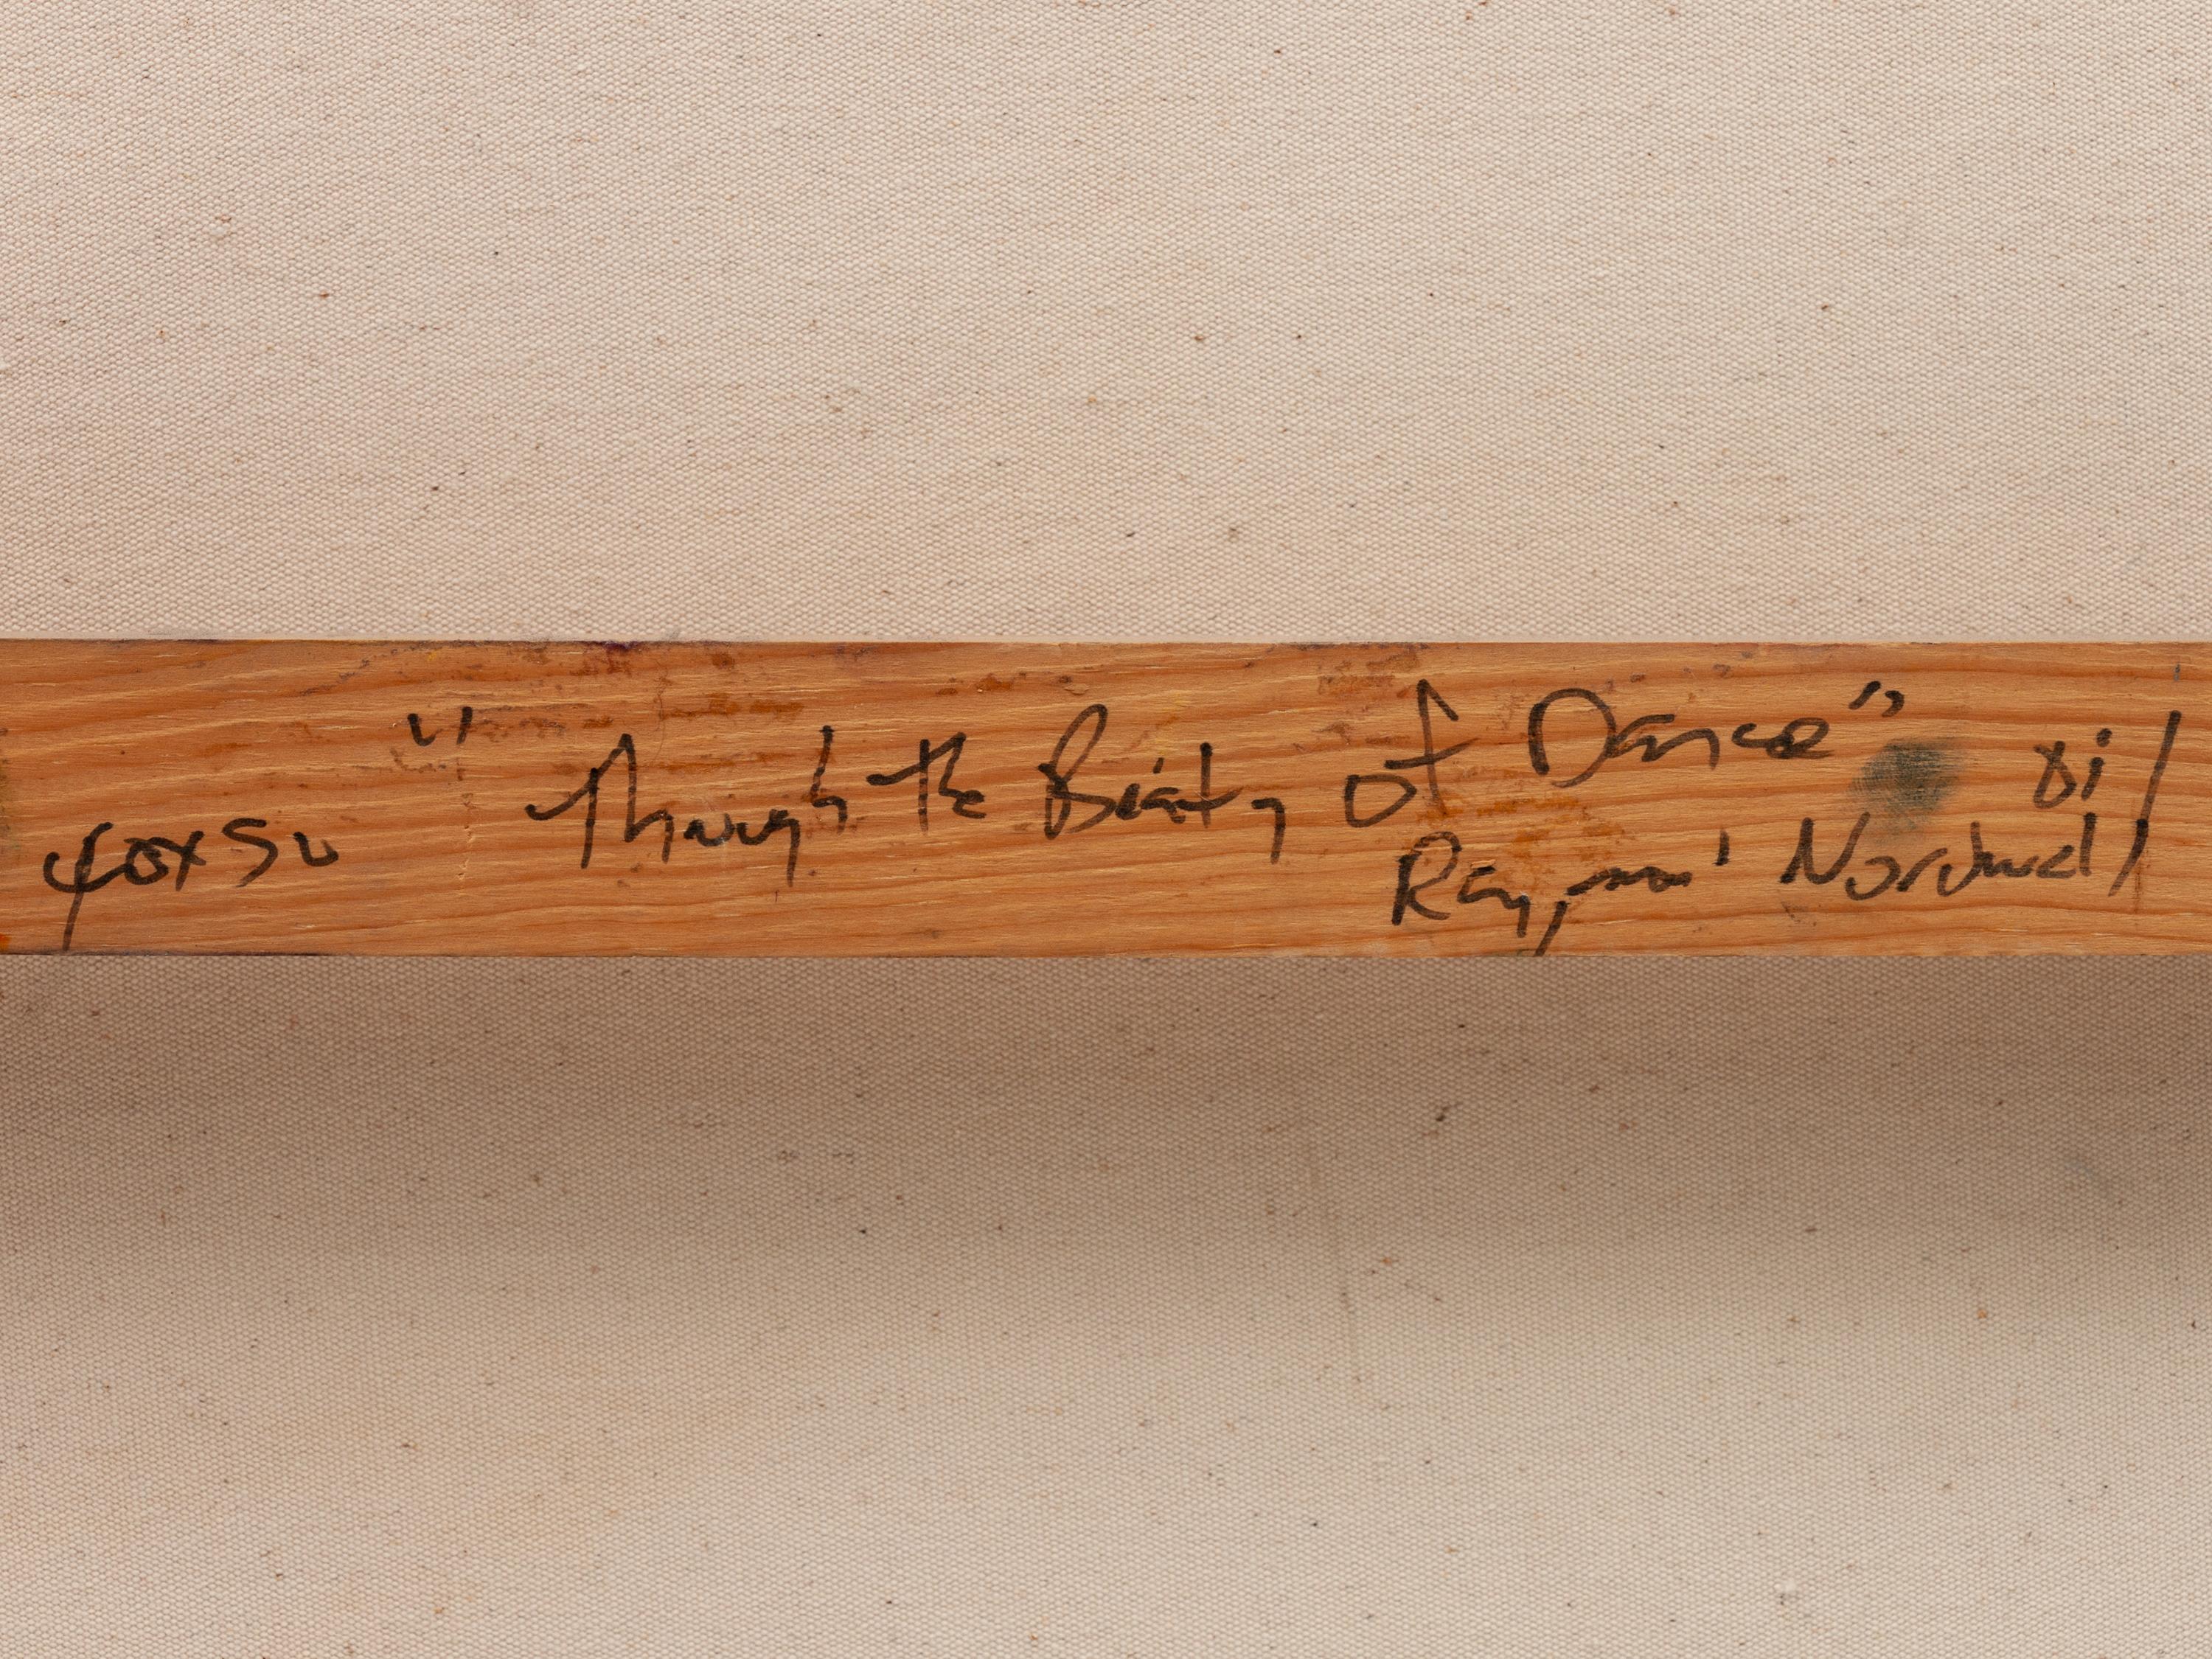 40x50 "Through the Beauty of Dance" oil
Raymond Nordwall